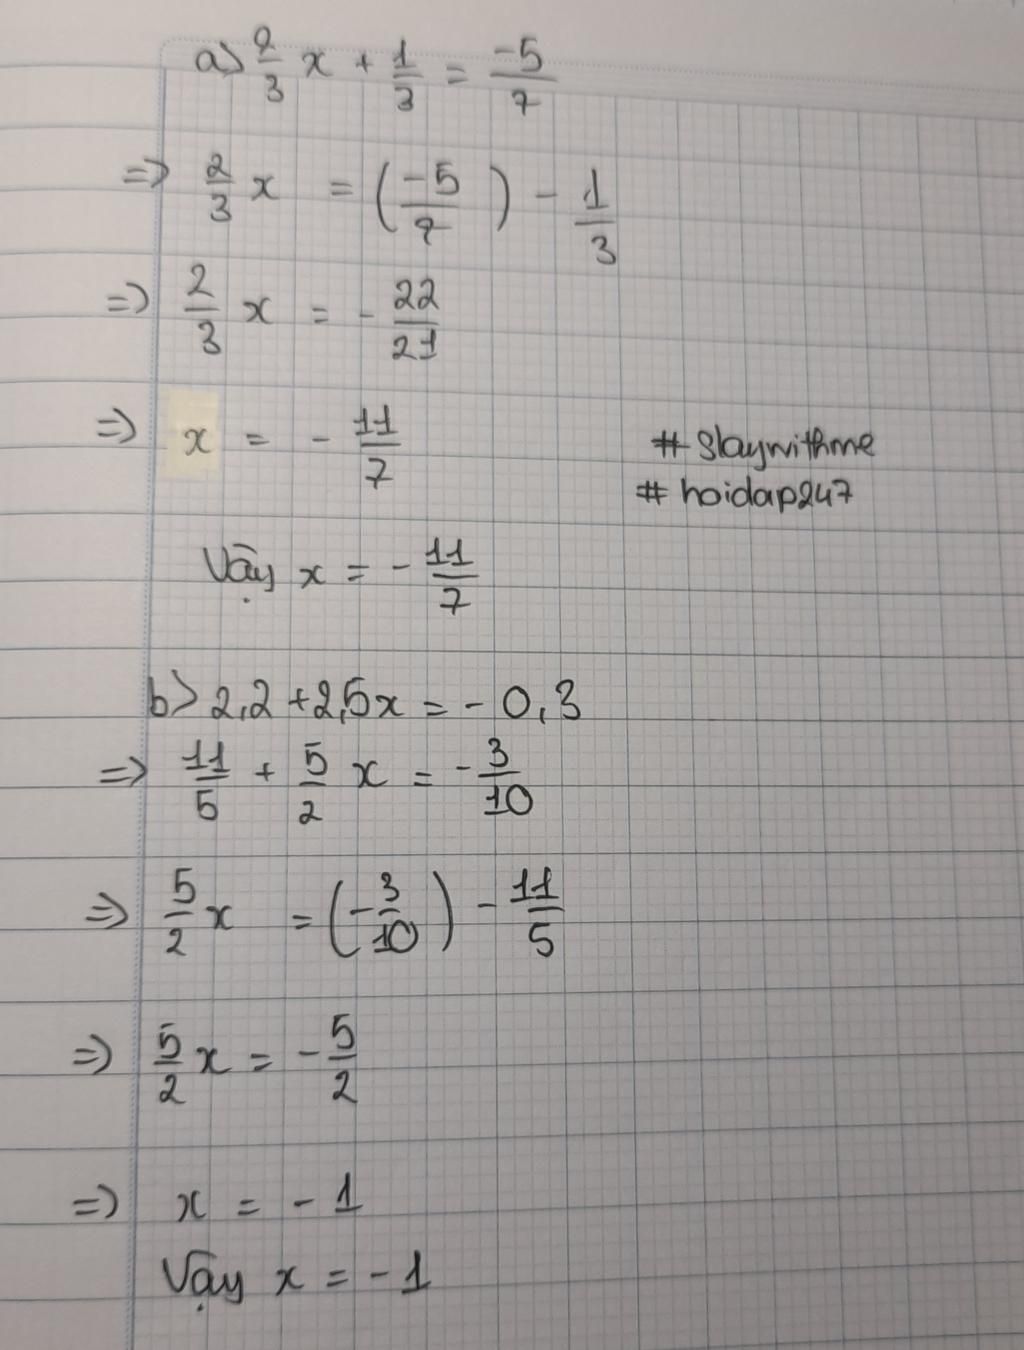 a) 2/3 x + 1/3 = -5/7
=> 2/3 x = (-5/7) - 1/3
=> 2/3 x = - 22/21
=> x = - 11/7
# Slaywithme
# hoidap247
Vậy x = - 11/7
b) 2,2 + 2,5x = - 0,3
=> 11/5 + 5/2 x = - 3/10
=> 5/2 x = (- 3/10) - 11/5
=> 5/2 x = - 5/2
=> x = - 1
Vậy x = - 1